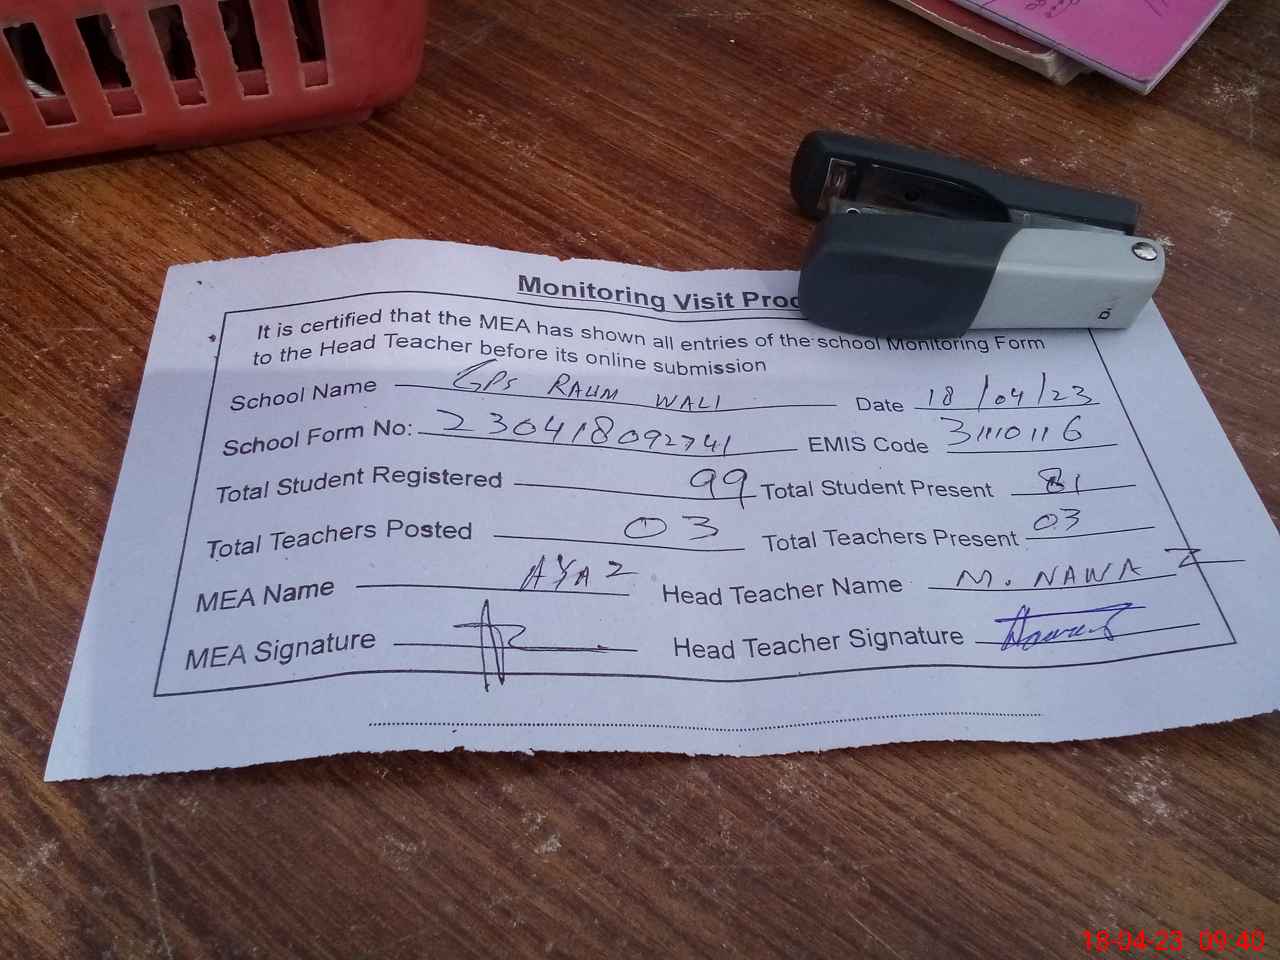 Monitoring Visit Proo
It is certified that the MEA has shown all entries of the school Monitoring Form
to the Head Teacher before its online submission
School Name GPS RAHM WALI Date 18/04/23
School Form No: 230418092741 EMIS Code 31110116
Total Student Registered 99 Total Student Present 81
Total Teachers Posted 03 Total Teachers Present 03
MEA Name AYAZ Head Teacher Name M. NAWAZ
MEA Signature Head Teacher Signature
18-04-23 09:40